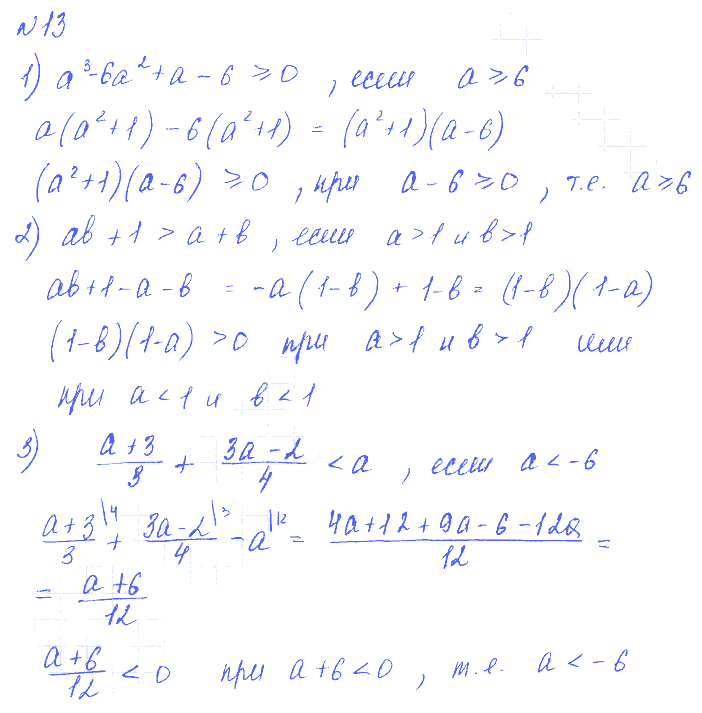 №13
1) a³-6a²+a-6 ≥0, если a≥6
a(a²+1)-6(a²+1) = (a²+1)(a-6)
(a²+1)(a-6) ≥0, при a-6≥0, т.е. a≥6
2) ab+1>a+b, если a>1 и b>1
ab+1-a-b = -a(1-b)+1-b = (1-b)(1-a)
(1-b)(1-a) >0 при a>1 и b>1 или
при a<1 и b<1
3) (a+3)/3 + (3a-2)/4 <a, если a<-6
(a+3)/3 |4 + (3a-2)/4 |3 - a |12 = (4a+12+9a-6-12a)/12 =
= (a+6)/12
(a+6)/12 <0 при a+6<0, т.е. a<-6